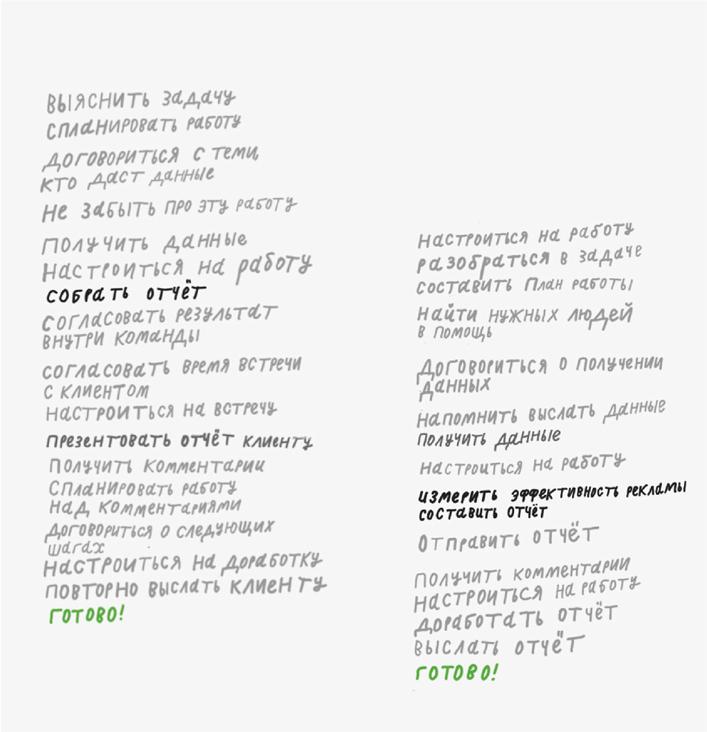 ВЫЯСНИТЬ ЗАДАЧУ
СПЛАНИРОВАТЬ РАБОТУ
ДОГОВОРИТЬСЯ С ТЕМИ,
КТО ДАСТ ДАННЫЕ
НЕ ЗАБЫТЬ ПРО ЭТУ РАБОТУ
ПОЛУЧИТЬ ДАННЫЕ
НАСТРОИТЬСЯ НА РАБОТУ
СОБРАТЬ ОТЧЁТ
СОГЛАСОВАТЬ РЕЗУЛЬТАТ
ВНУТРИ КОМАНДЫ
СОГЛАСОВАТЬ ВРЕМЯ ВСТРЕЧИ
С КЛИЕНТОМ
НАСТРОИТЬСЯ НА ВСТРЕЧУ
ПРЕЗЕНТОВАТЬ ОТЧЁТ КЛИЕНТУ
ПОЛУЧИТЬ КОММЕНТАРИИ
СПЛАНИРОВАТЬ РАБОТУ
НАД КОММЕНТАРИЯМИ
ДОГОВОРИТЬСЯ О СЛЕДУЮЩИХ
ШАГАХ
НАСТРОИТЬСЯ НА ДОРАБОТКУ
ПОВТОРНО ВЫСЛАТЬ КЛИЕНТУ
ГОТОВО!
НАСТРОИТЬСЯ НА РАБОТУ
РАЗОБРАТЬСЯ В ЗАДАЧЕ
СОСТАВИТЬ ПЛАН РАБОТЫ
НАЙТИ НУЖНЫХ ЛЮДЕЙ
В ПОМОЩЬ
ДОГОВОРИТЬСЯ О ПОЛУЧЕНИИ
ДАННЫХ
НАПОМНИТЬ ВЫСЛАТЬ ДАННЫЕ
ПОЛУЧИТЬ ДАННЫЕ
НАСТРОИТЬСЯ НА РАБОТУ
ИЗМЕРИТЬ ЭФФЕКТИВНОСТЬ РЕКЛАМЫ
СОСТАВИТЬ ОТЧЁТ
ОТПРАВИТЬ ОТЧЁТ
ПОЛУЧИТЬ КОММЕНТАРИИ
НАСТРОИТЬСЯ НА РАБОТУ
ДОРАБОТАТЬ ОТЧЁТ
ВЫСЛАТЬ ОТЧЁТ
ГОТОВО!